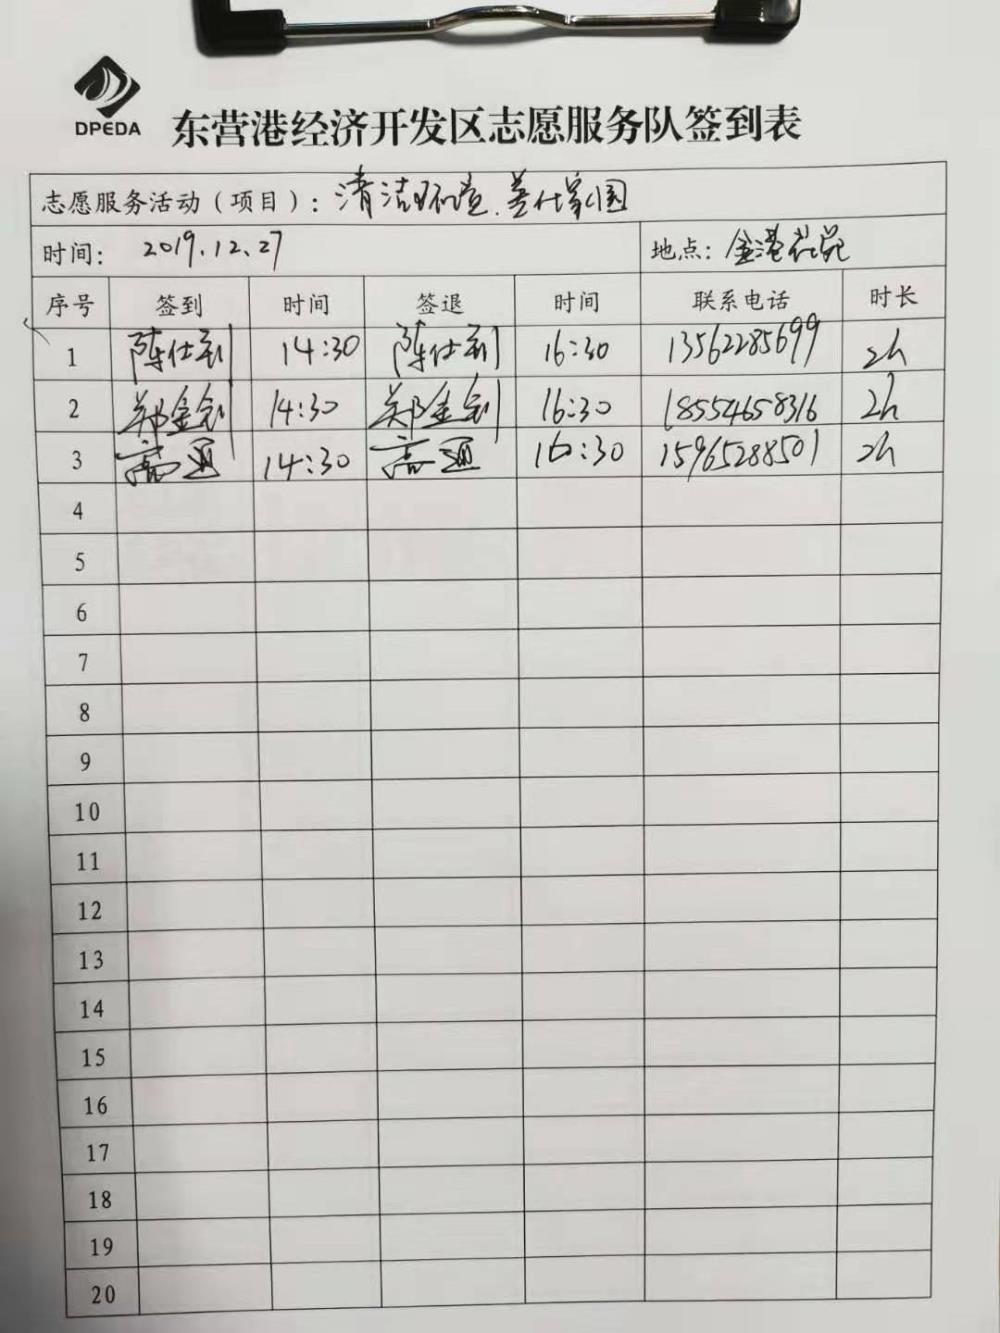 DPEDA
东营港经济开发区志愿服务队签到表
志愿服务活动（项目）：清洁环境.美化家园
时间： 2019.12.27 地点：金港花苑
序号 签到 时间 签退 时间 联系电话 时长
1 陈仕利 14:30 陈仕利 16:30 13562285699 2h
2 郑金钊 14:30 郑金钊 16:30 18554658316 2h
3 高通 14:30 高通 16:30 15965288501 2h
4
5
6
7
8
9
10
11
12
13
14
15
16
17
18
19
20